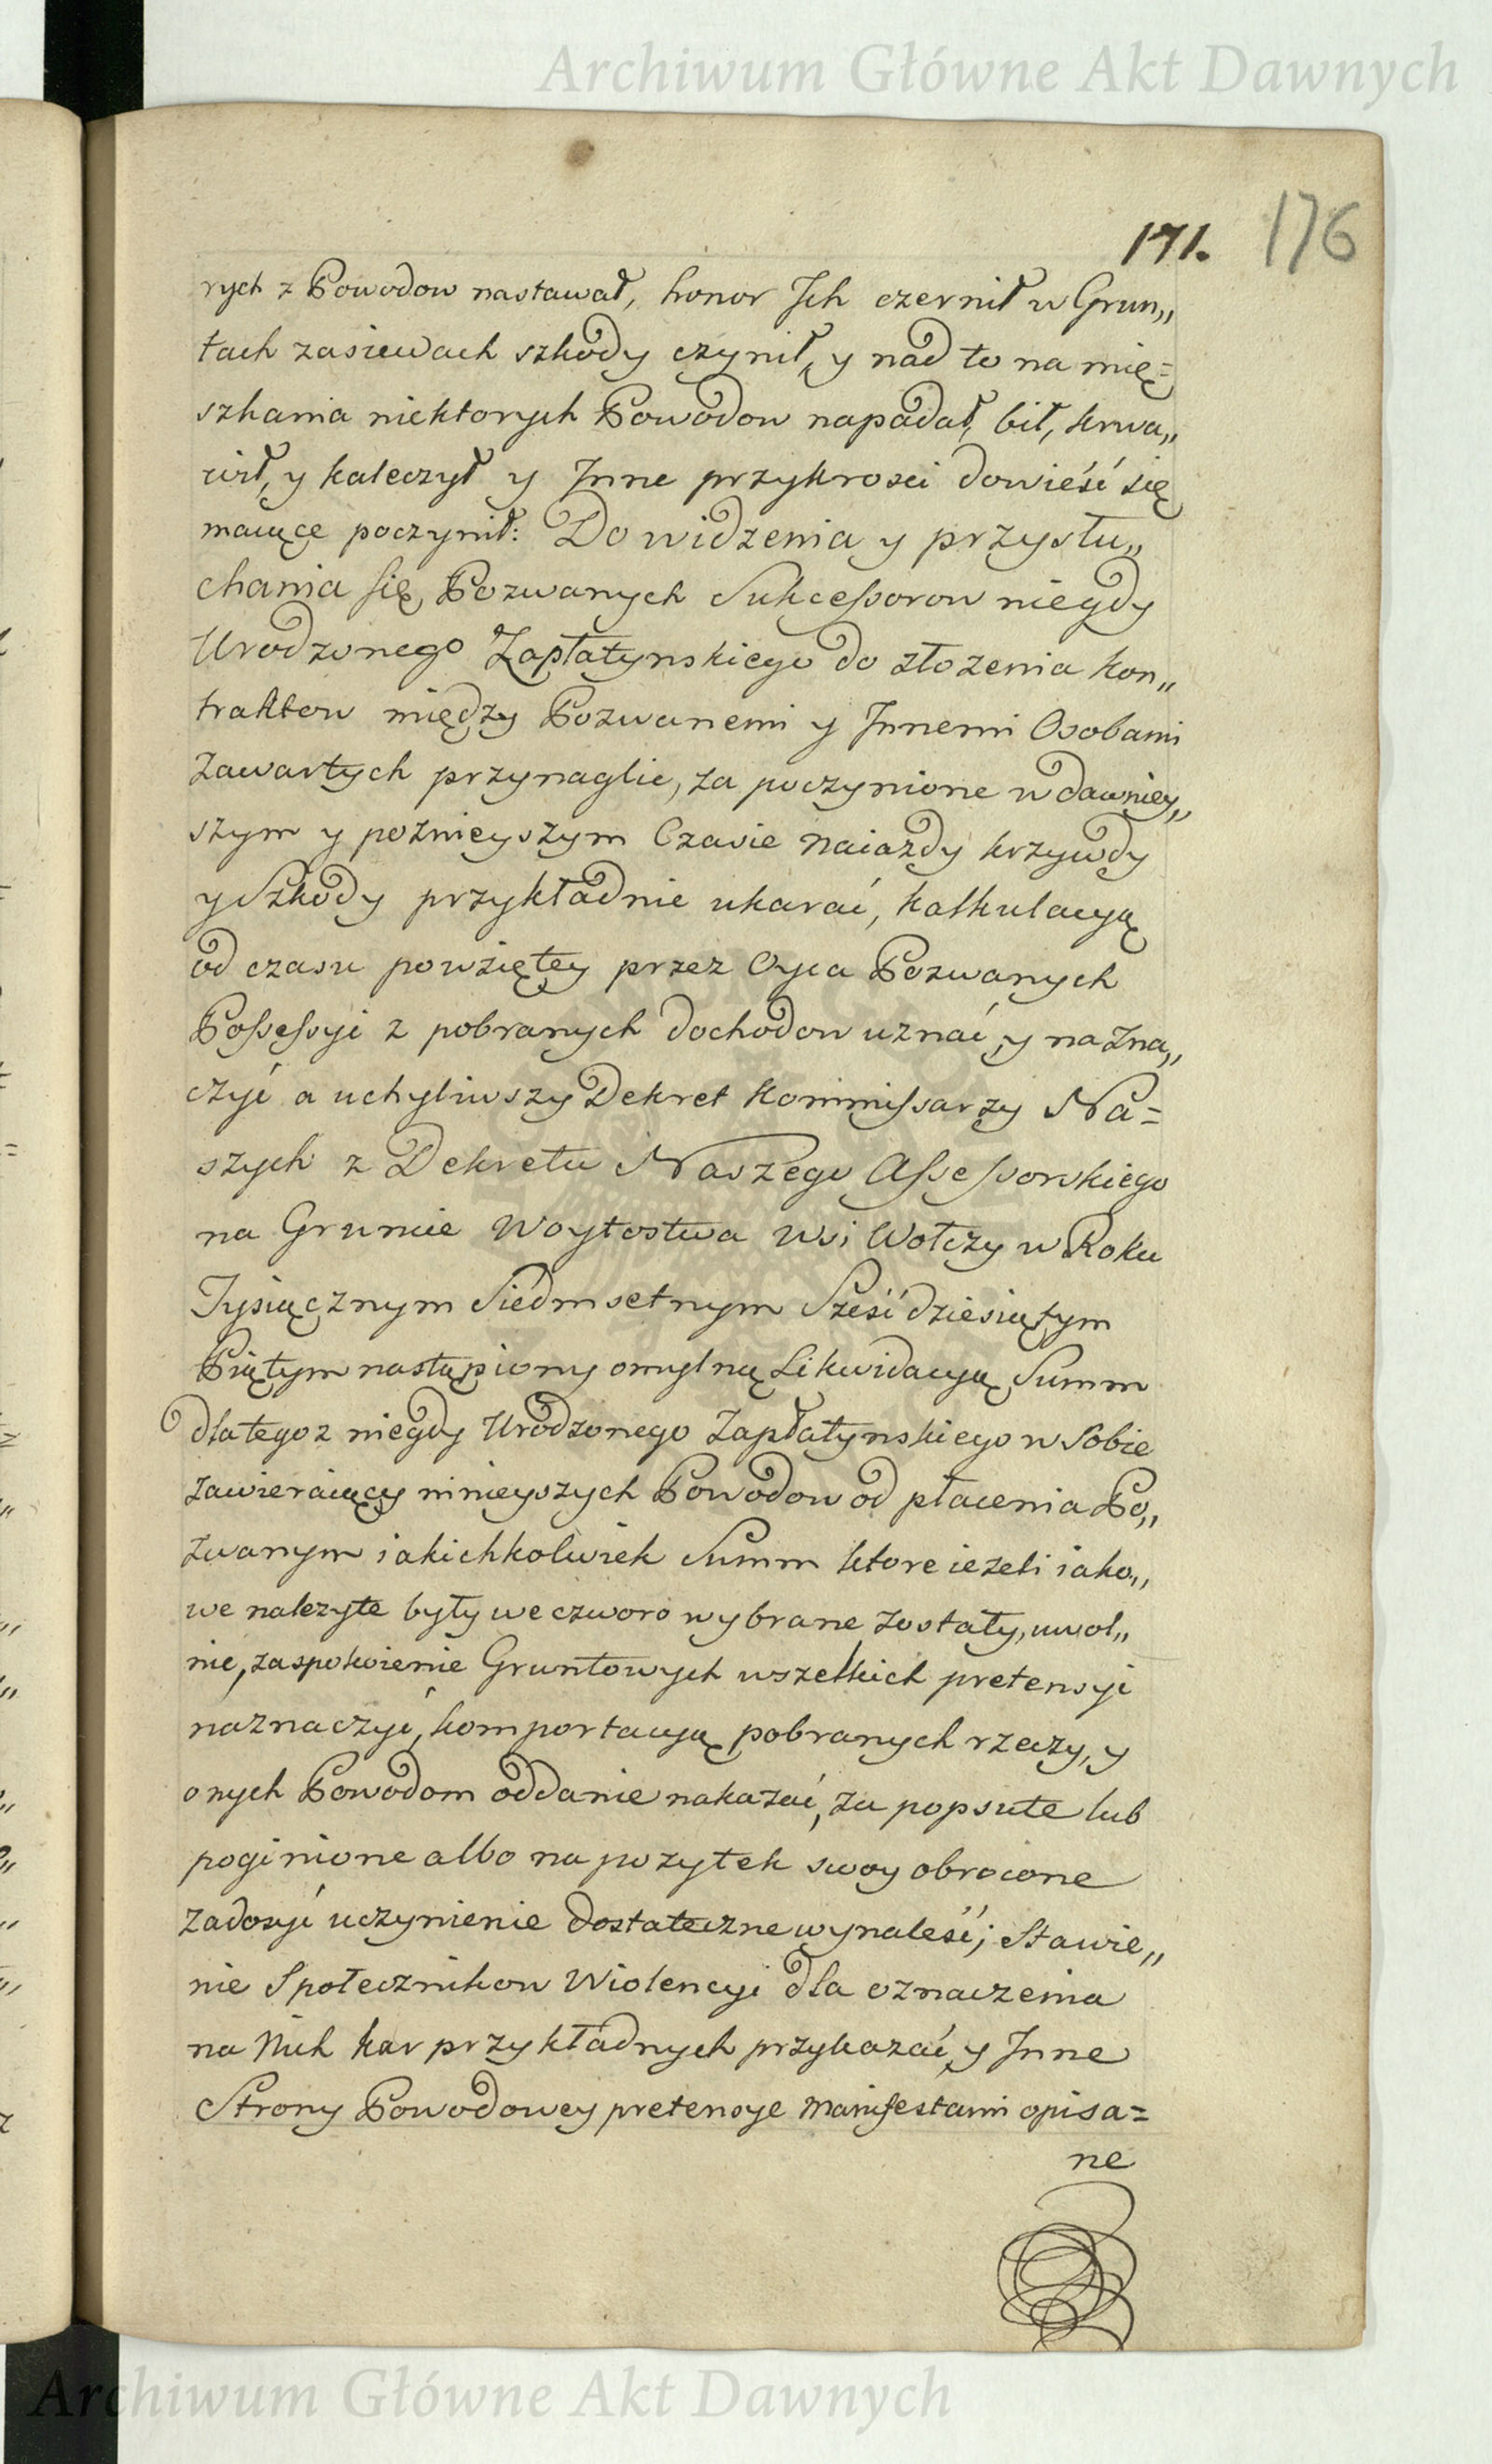 Archiwum Główne Akt Dawnych
171. 176
rych z Powodow nastawał, honor Jch czernił w Grun„
tach zasiewach szkody czynił, y nad to na mię=
szkania niektorych Powodow napadał, bił, krwa„
wił, y kaleczył y Jnne przykrosci dowieść się
maiące poczynił: Do widzenia y przysłu„
chania się Pozwanych Sukcessorow niegdy
Urodzonego Zapłatynskiego do złozenia kon„
traktow między Pozwanemi y Jnnemi Osobami
zawartych przynaglic, za poczynione w dawniey„
szym y poznieyszym Czasie naiazdy krzywdy
y Szkody przykładnie ukarać, kalkulacyą
od czasu powziętey przez Oyca Pozwanych
Possessyi z pobranych dochodow uznać y nazna„
czyć a uchyliwszy Dekret Kommissarzy Na=
szych z Dekretu Naszego Assessorskiego
na Gruncie Woytostwa Wsi Wołczy w Roku
Tysiącznym Siedmsetnym Sześćdziesiątym
Piątym nastąpiony omylną Likwidacyą Summ
dla tegoz niegdy Urodzonego Zapłatynskiego w Sobie
zawieraiący ninieyszych Powodow od płacenia Po„
zwanym iakichkolwiek Summ ktore iezeli iako„
we nalezyte były we czworo wybrane zostały, uwol„
nić, zaspokoienie Gruntowych wszelkich pretensyi
naznaczyć, komportacyą pobranych rzeczy, y
onych Powodom oddanie nakazać, za popsute lub
poginione albo na pozytek swoy obrocone
zadosyć uczynienie dostateczne wynaleść; Stawie„
nie Społecznikow Wiolencyi dla oznaczenia
na Nich kar przykładnych przykazać y Jnne
Strony Powodowey pretensye Manifestami opisa=
ne
Archiwum Główne Akt Dawnych